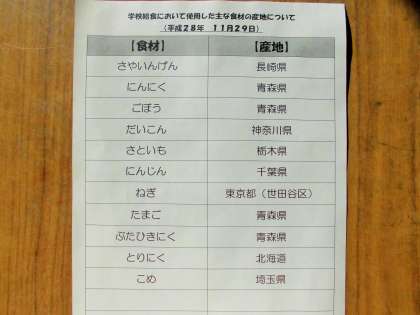 学校給食において使用した主な食材の産地について
（平成２８年　１１月２９日）
【食材】　【産地】
さやいんげん　長崎県
にんにく　青森県
ごぼう　青森県
だいこん　神奈川県
さといも　栃木県
にんじん　千葉県
ねぎ　東京都（世田谷区）
たまご　青森県
ぶたひきにく　青森県
とりにく　北海道
こめ　埼玉県